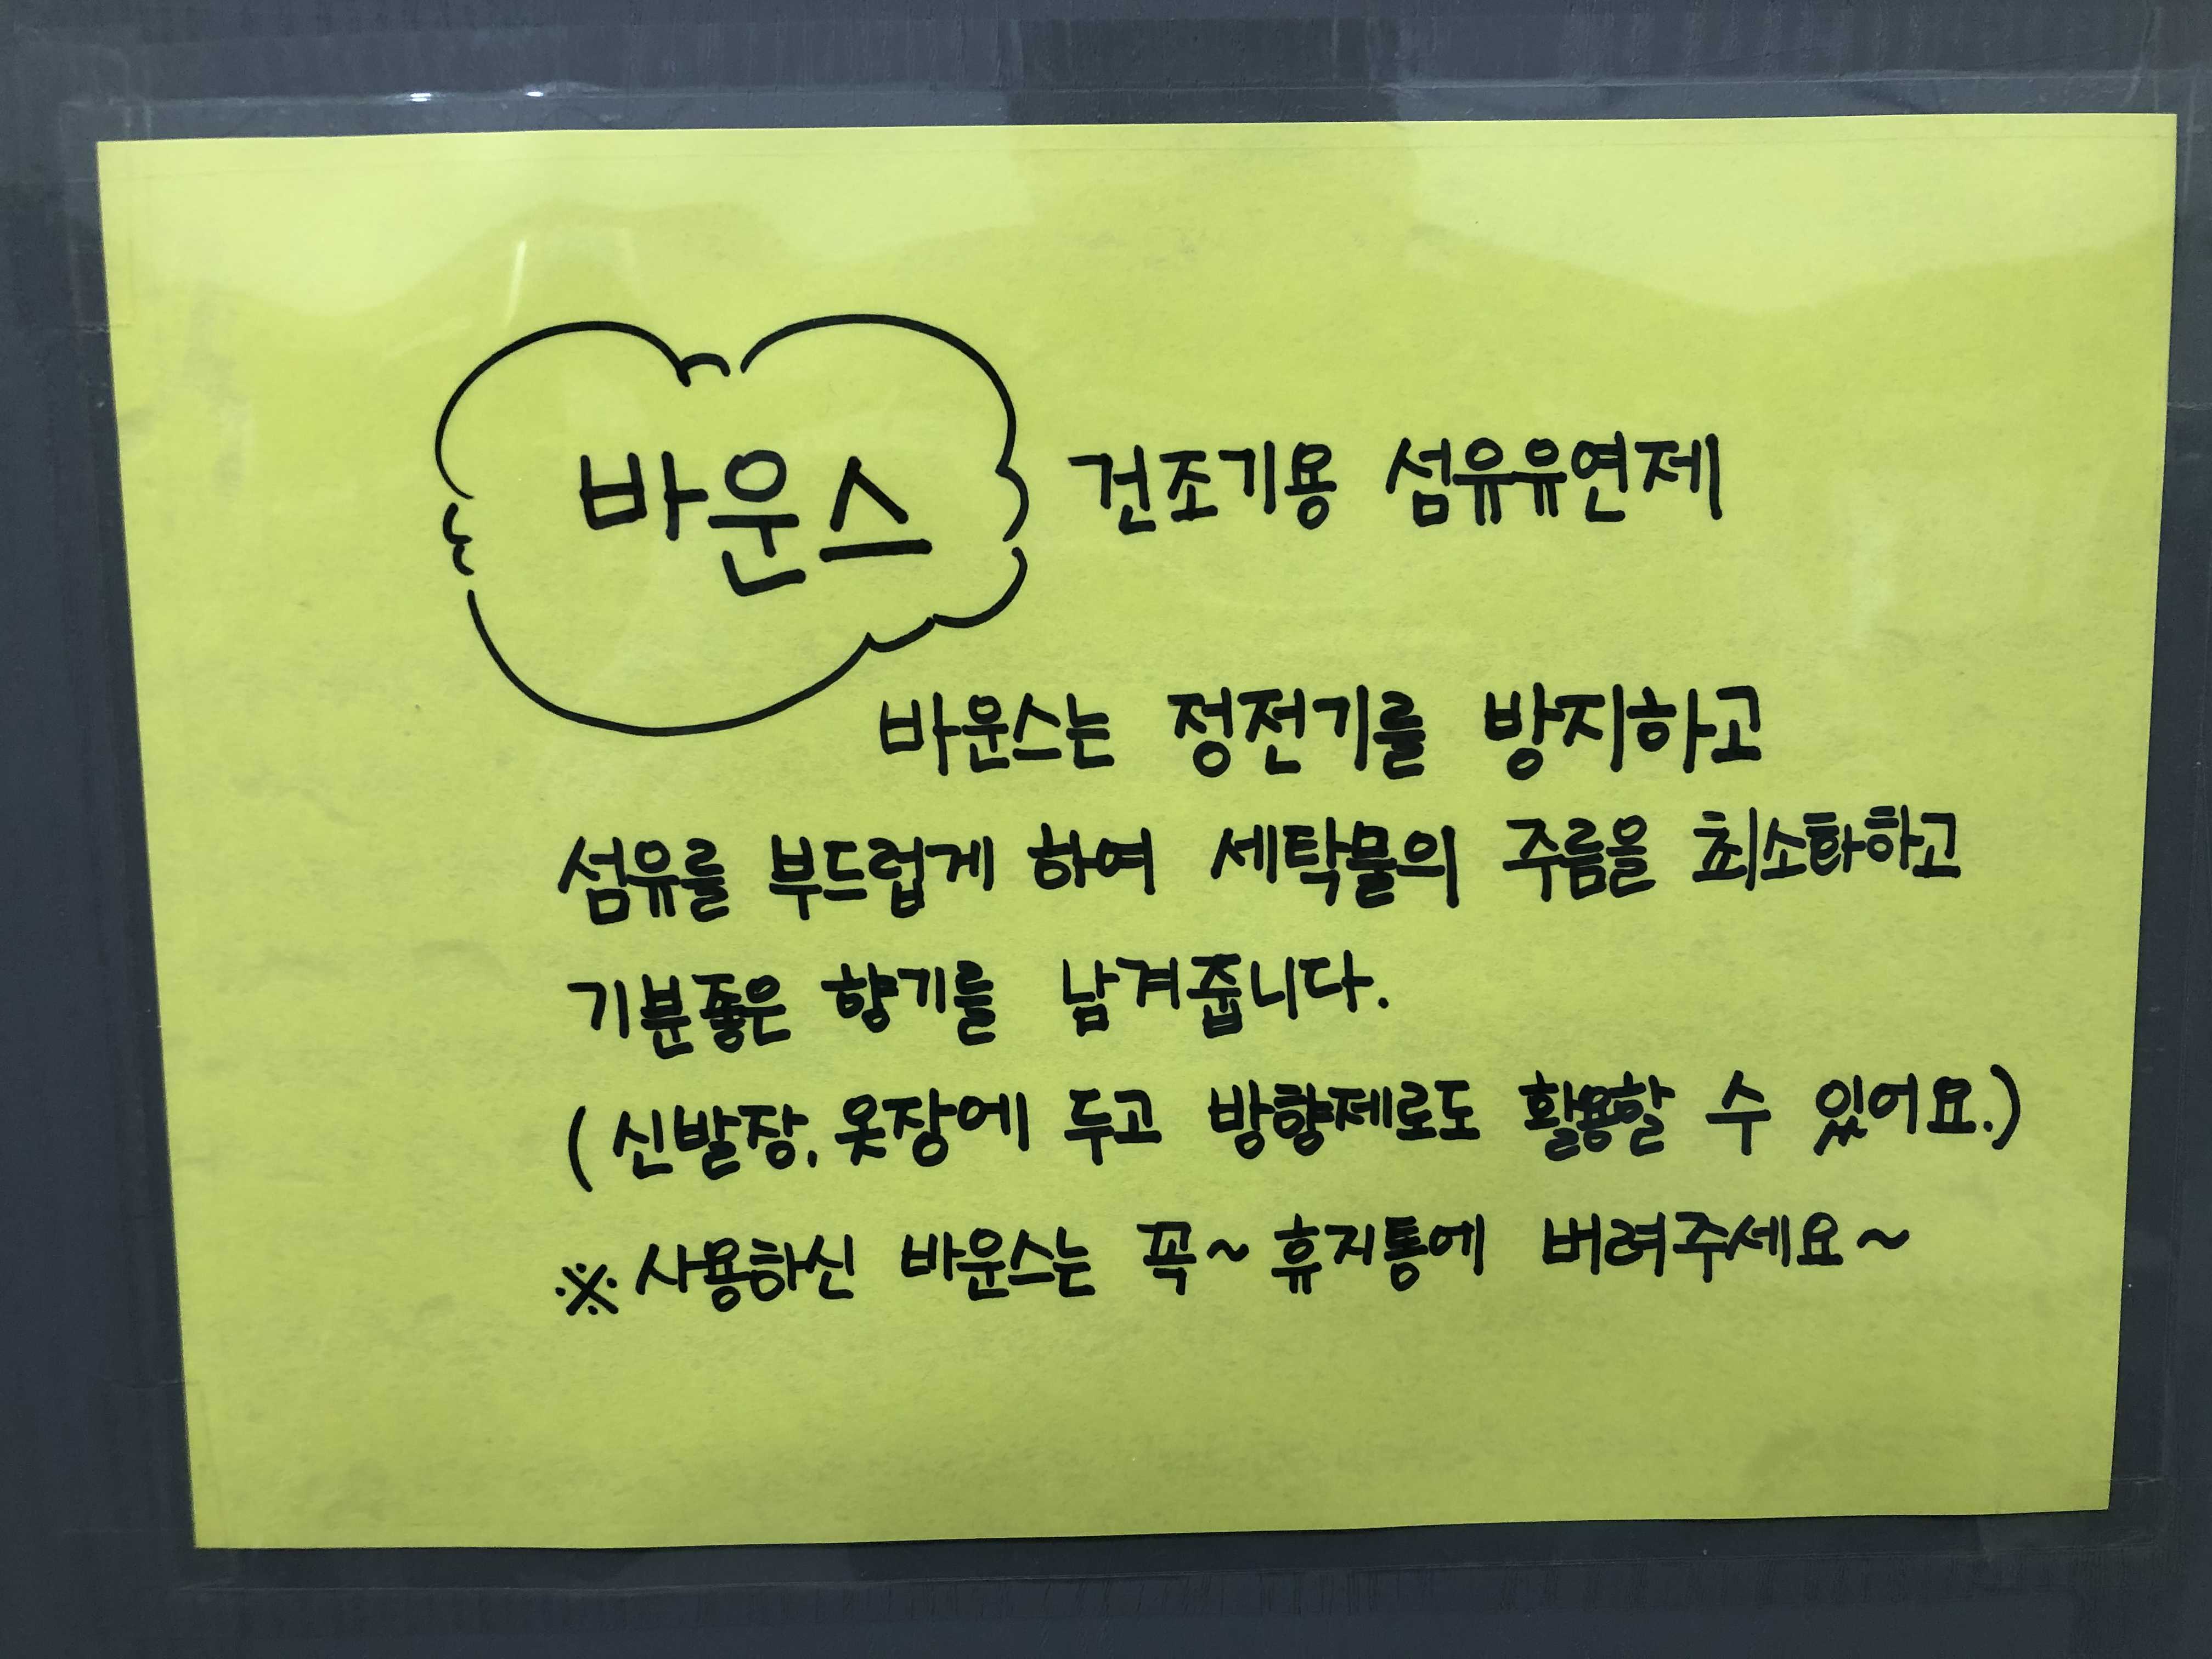 바운스 건조기용 섬유유연제
바운스는 정전기를 방지하고
섬유를 부드럽게 하여 세탁물의 주름을 최소화하고
기분좋은 향기를 남겨줍니다.
(신발장, 옷장에 두고 방향제로도 활용할 수 있어요.)
※사용하신 바운스는 꼭~ 휴지통에 버려주세요~